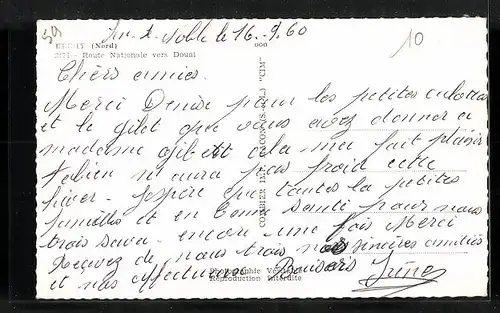 59
le 16-9-60
10
BUGNY (Nord)
000
Route Nationale vers Douai
Chèrs amies.
Merci Denise pour les petites culottes
et le gilet que vous avez donner a
madame cela ma fait plaisir
n aura pas froid cette
hiver. J'espère que toutes la petites
familles et en bonne santé pour nous
trois sava. encore une fois Merci
Recevez de nous trois nos sincères amitiés
et nos affectueux Baisers Irène
COMBIER IMP. MACON (S.-&-L.) "CIM"
Photographie Véritable
Reproduction Interdite